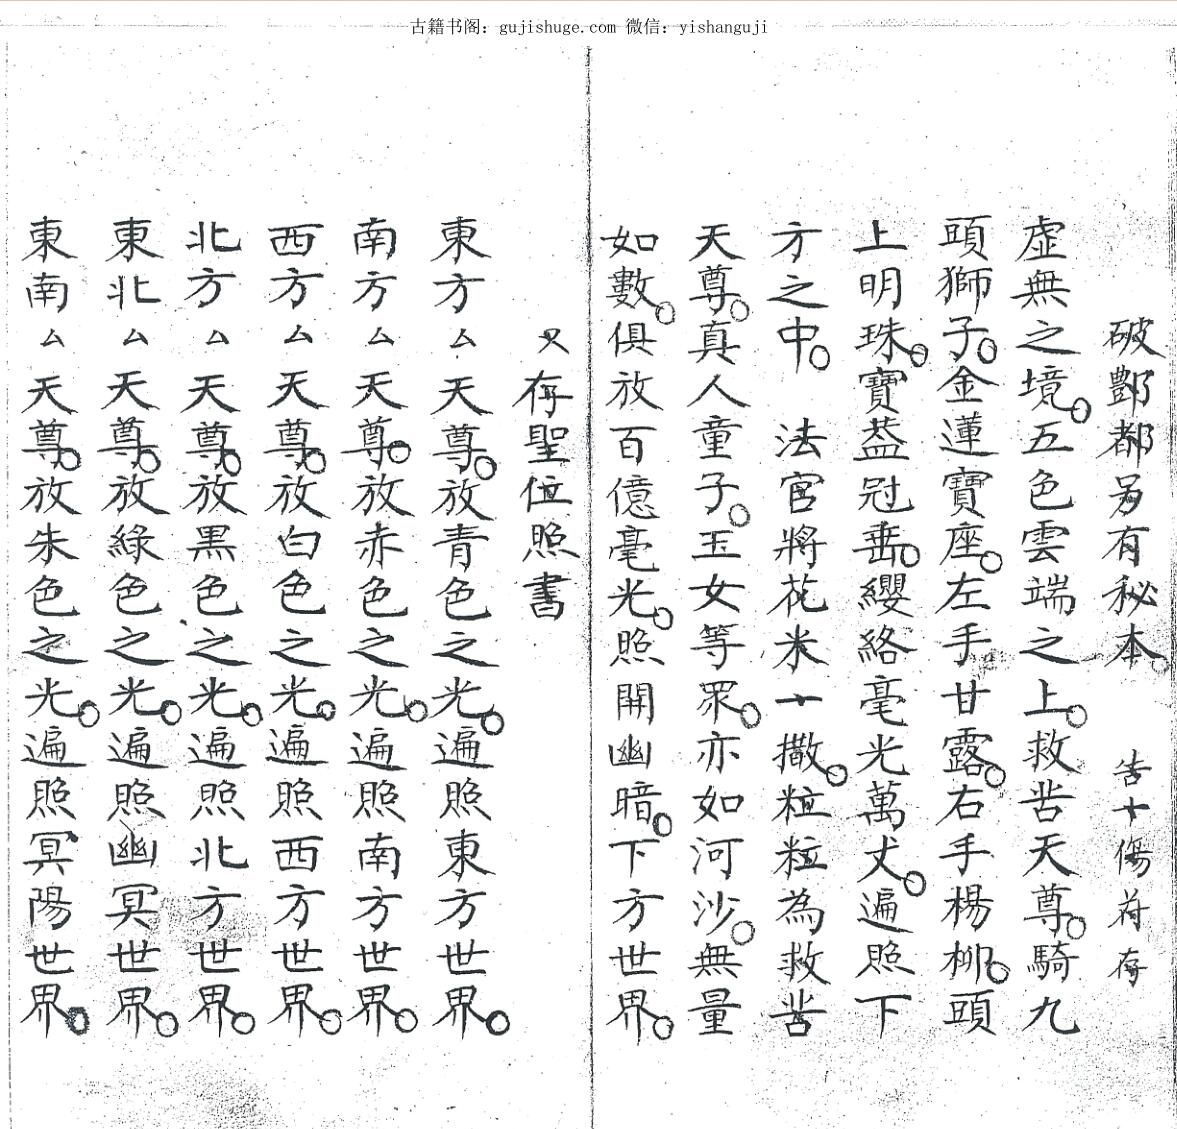 古籍书阁：gujishuge.com 微信：yishanguji
破酆都另有秘本。 告十傷符存
虛無之境。五色雲端之上。救苦天尊。騎九
頭獅子。金蓮寶座。左手甘露。右手楊柳。頭
上明珠。寶蓋冠垂。纓絡毫光萬丈。遍照下
方之中。 法官將花米一撒。粒粒為救苦
天尊。真人童子。玉女等眾。亦如河沙。無量
如數。俱放百億毫光。照開幽暗。下方世界。
又存聖位照書
東方厶天尊。放青色之光。遍照東方世界。
南方厶天尊。放赤色之光。遍照南方世界。
西方厶天尊。放白色之光。遍照西方世界。
北方厶天尊。放黑色之光。遍照北方世界。
東北厶天尊。放綠色之光。遍照幽冥世界。
東南厶天尊。放朱色之光。遍照冥陽世界。